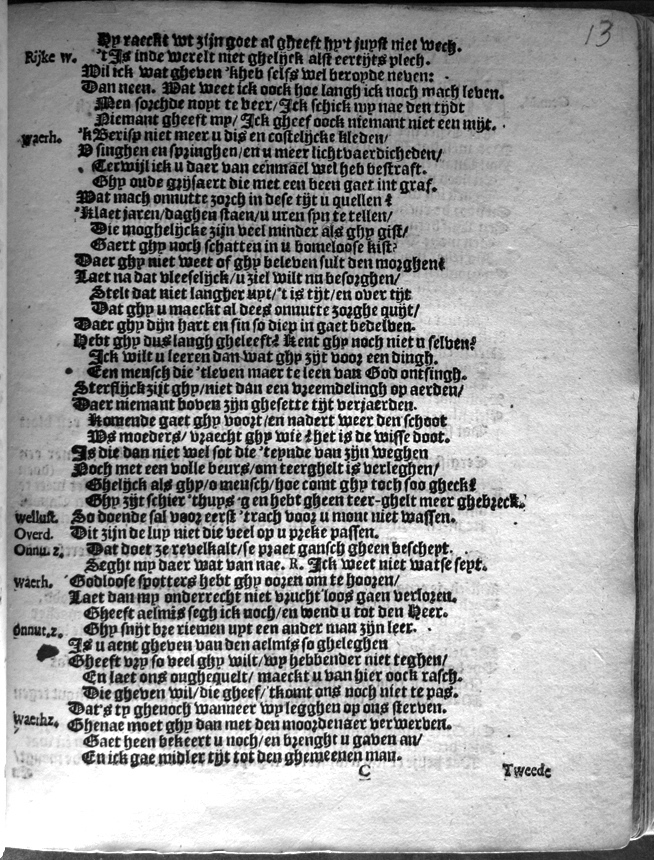 13
Hy raeckt wt zijn goet al gheeft hy't juyst niet wech.
Rijke w. 't Is inde werelt niet ghelijck alst eertijts plech.
Wil ick wat gheven 'kheb selfs wel beroyde neven:
Dan neen. Wat weet ick oock hoe langh ick noch mach leven.
Men sorchde noyt te veer/ Ick schick my nae den tijdt
Niemant gheeft my/ Ick gheef oock niemant niet een mijt.
waerh. 'k Berisp niet meer u dis en costelijcke kleden/
U singhen en springhen/ en u meer lichtvaerdicheden/
Terwijl ick u daer van eenmael wel heb bestraft.
Ghy oude grijsaert die met een been gaet int graf.
Wat mach onnutte zorch in dese tijt u quellen?
'Klaet jaren/ daghen staen/ u uren syn te tellen/
Die moghelijcke zijn veel minder als ghy gist/
Gaert ghy noch schatten in u bomeloose kist?
Daer ghy niet weet of ghy beleven sult den morghen?
Laet na dat vleeselijck/ u ziel wilt nu besorghen/
Stelt dat niet langher uyt/ 't is tijt/ en over tijt
Dat ghy u maeckt al dees onnutte zorghe quijt/
Daer ghy dijn hart en sin so diep in gaet bedelven.
Hebt ghy dus langh gheleeft? Kent ghy noch niet u selven?
Ick wilt u leeren dan wat ghy zijt voor een dingh.
Een mensch die 'tleven maer te leen van God ontfingh.
Sterflijck zijt ghy/ niet dan een vreemdelingh op aerden/
Daer niemant boven zijn ghesette tijt verjaerden.
Komende gaet ghy voort/ en nadert weer den schoot
Ws moeders/ vraecht ghy wie? het is de wisse doot.
Is die dan niet wel sot die 'teynde van zijn weghen
Noch met een volle beurs/ om teerghelt is verleghen/
Ghelijck als ghy/ o mensch/ hoe comt ghy toch soo gheck?
Ghy zijt schier 'thuys g'en hebt gheen teer-ghelt meer ghebreck.
wellust. So doende sal voor eerst 'trach voor u mont niet wassen.
Overd. Dit zijn de luy niet die veel op u preke passen.
Onnu. z. Dat doet ze revelkalt/ se praet gansch gheen bescheyt.
Seght my daer wat van nae. R. Ick weet niet watse seyt.
waerh. Godloose spotters hebt ghy ooren om te hooren/
Laet dan my onderrecht niet vrucht'loos gaen verloren.
Gheeft aelmis segh ick noch/ en wend u tot den Heer.
onnut. z. Ghy snijt bre riemen uyt een ander man zijn leer.
Is u aent gheven van den aelmis so gheleghen
Gheeft vry so veel ghy wilt/ wy hebbender niet teghen/
En laet ons onghequelt/ maeckt u van hier oock rasch.
Die gheven wil/ die gheef/ 'tkomt ons noch niet te pas.
Dat's ty ghenoch wanneer wy legghen op ons sterven.
waerhz. Ghenae moet ghy dan met den moordenaer verwerven.
Gaet heen bekeert u noch/ en brenght u gaven an/
En ick gae midler tijt tot den ghemeenen man.
C Tweede